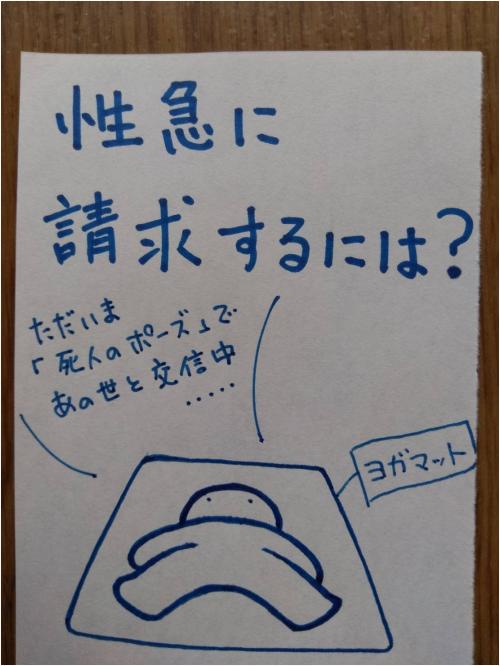 性急に
請求するには?
ただいま
「死人のポーズ」で
あの世と交信中
.....
ヨガマット